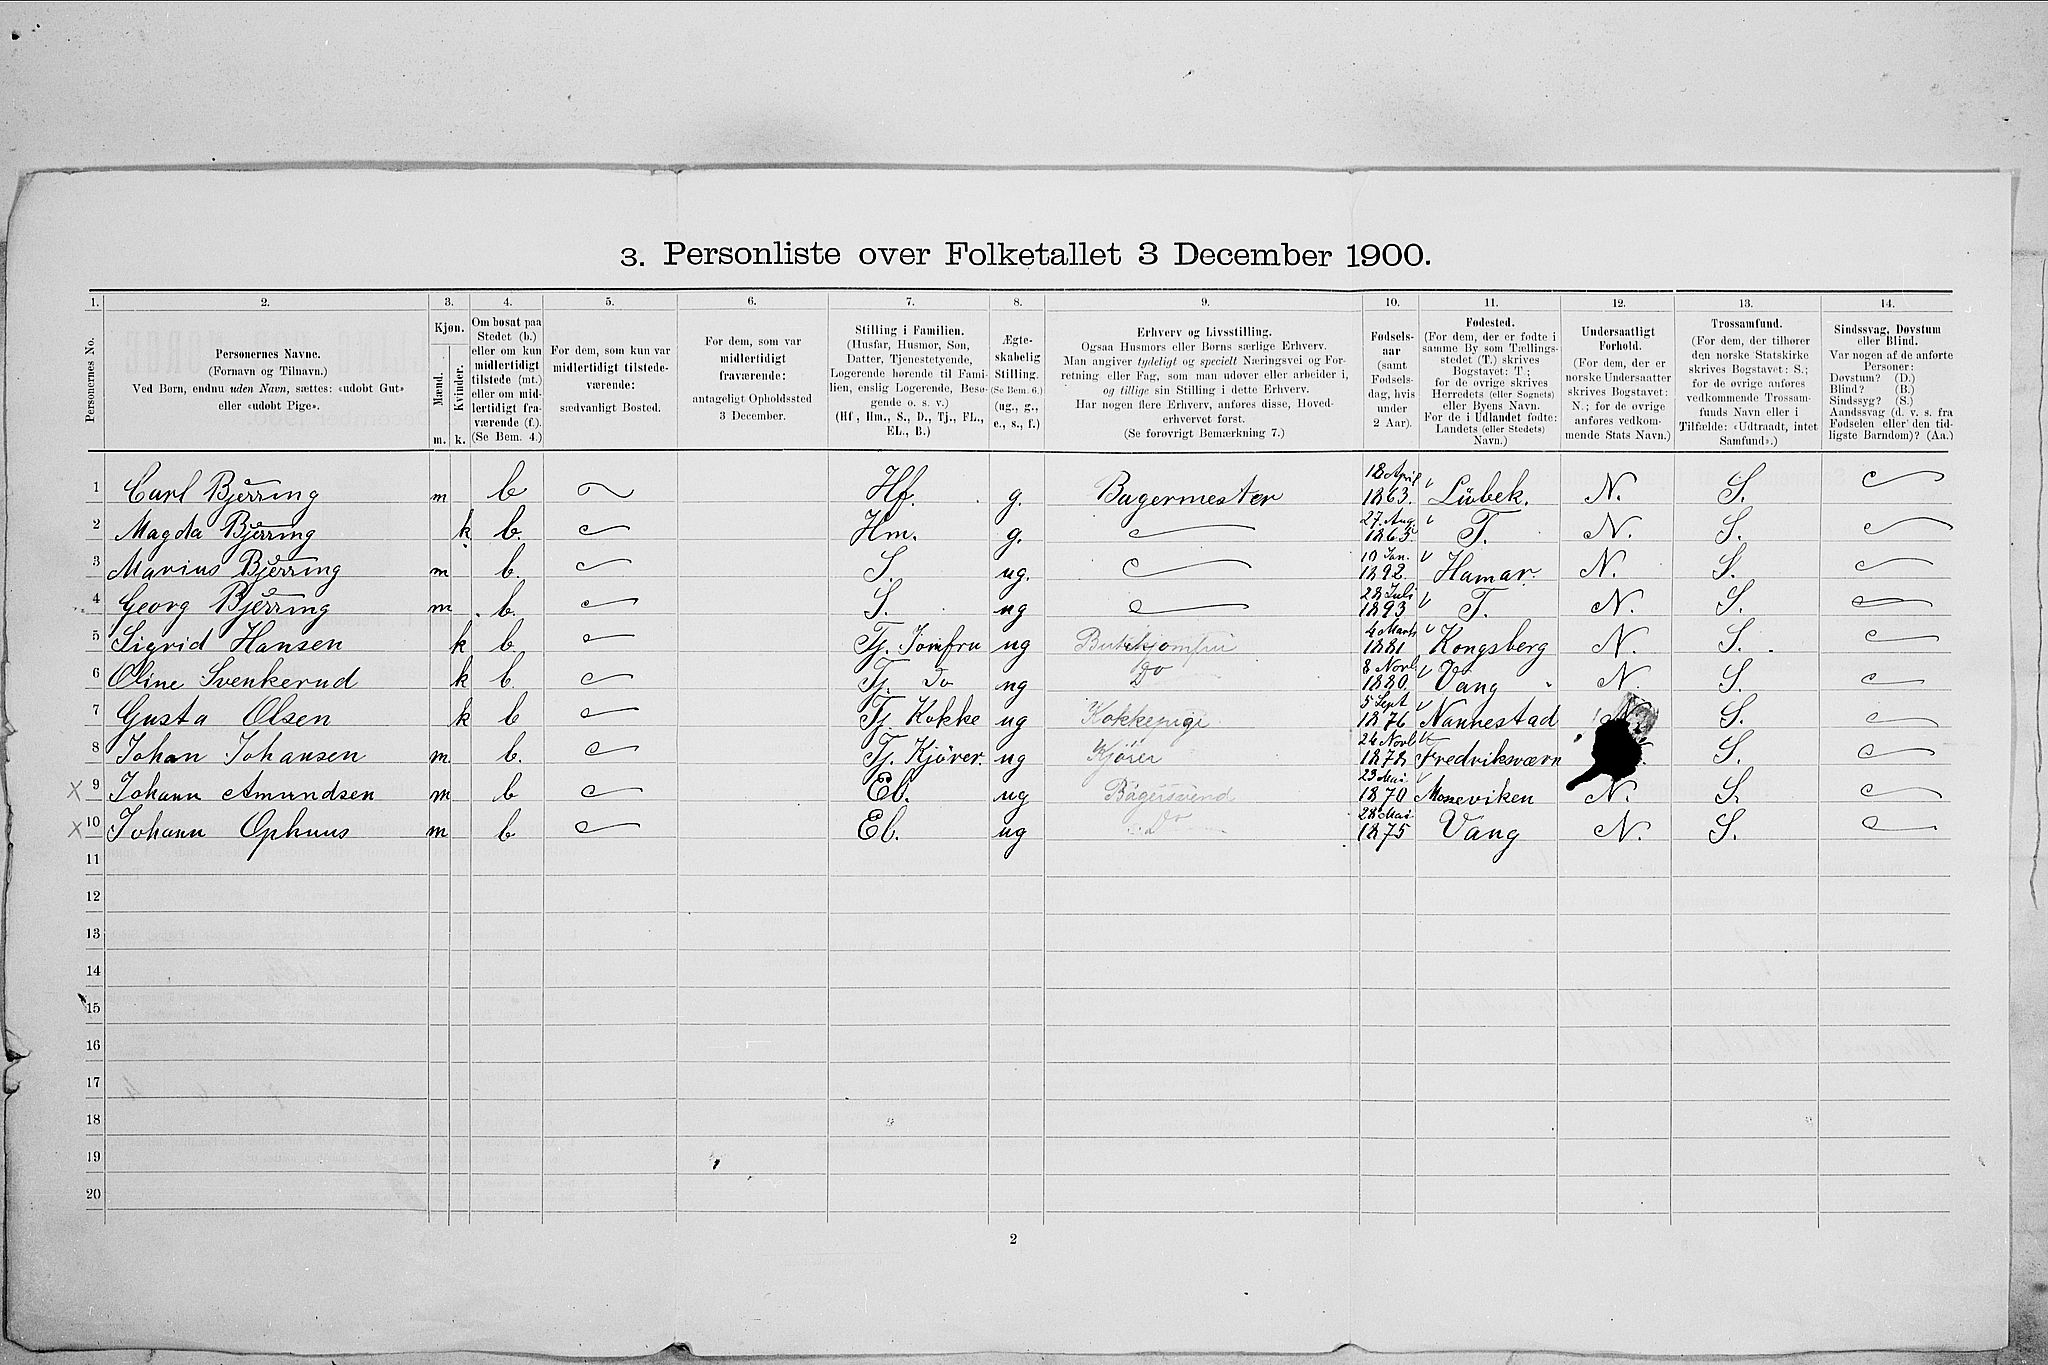 3. Personliste over Folketallet 3 December 1900.
1. 2. 3. 4. 5. 6. 7. 8. 9. 10. 11. 12. 13. 14.
Personernes No.
Personernes Navne.
(Fornavn og Tilnavn.)
Ved Børn, endnu uden Navn, sættes: «udøbt Gut»
eller «udøbt Pige».
Kjøn.
Mænd.
Kvinder.
m. k.
Om bosat paa
Stedet (b.)
eller om kun
midlertidigt
tilstede (mt.)
eller om mid-
lertidigt fra-
værende (f.).
(Se Bem. 4.)
For dem, som kun var
midlertidigt tilstede-
værende:
sædvanligt Bosted.
For dem, som var
midlertidigt
fraværende:
antageligt Opholdssted
3 December.
Stilling i Familien.
(Husfar, Husmor, Søn,
Datter, Tjenestetyende,
Logerende hørende til Fami-
lien, enslig Logerende, Besø-
gende o. s. v.)
(Hf., Hm., S., D., Tj., FL.,
EL., B.)
Ægte-
skabelig
Stilling.
(Se Bem. 6.)
(ug., g.,
e., s., f.)
Erhverv og Livsstilling.
Ogsaa Husmors eller Børns særlige Erhverv.
Man angiver tydeligt og specielt Næringsvei og For-
retning eller Fag, som man udøver eller arbeider i,
og tillige sin Stilling i dette Erhverv.
Har nogen flere Erhverv, anføres disse, Hoved-
erhvervet først.
(Se forøvrigt Bemærkning 7.)
Fødsels-
aar
(samt
Fødsels-
dag, hvis
under
2 Aar).
Fødested.
(For dem, der er fødte i
samme By som Tællings-
stedet (T.) skrives
Bogstavet: T;
for de øvrige skrives
Herredets (eller Sognets)
eller Byens Navn.
For de i Udlandet fødte:
Landets (eller Stedets)
Navn.)
Undersaatligt
Forhold.
(For dem, der er
norske Undersaatter
skrives Bogstavet:
N.; for de øvrige
anføres vedkom-
mende Stats Navn.)
Trossamfund.
(For dem, der tilhører
den norske Statskirke
skrives Bogstavet: S.;
for de øvrige anføres
vedkommende Trossam-
funds Navn eller i
Tilfælde: «Udtraadt, intet
Samfund».)
Sindssvag, Døvstum
eller Blind.
Var nogen af de anførte
Personer:
Døvstum? (D.)
Blind? (B.)
Sindssyg? (S.)
Aandssvag (d. v. s. fra
Fødselen eller den tid-
ligste Barndom)? (Aa.)
1 Carl Bjerring m b Hf. g. Bagermester 18 April 1863. Lübek. N. S.
2 Magda Bjerring k b. Hm. g. 27. Aug. 1863 T. N. S.
3 Marius Bjerring m b. S. ug. 10 Jan. 1892. Hamar. N. S.
4 Georg Bjerring m b. S. ug 28 Juli 1893 T. N. S.
5 Sigrid Hansen k b Tj. Jomfru ug Butikjomfru 4 Marts 1881 Kongsberg N. S.
6 Oline Svenkerud k b. Tj. Do ug Do 8 Novb 1880. Vang N S.
7 Gusta Olsen k b Tj Kokke ug Kokkepige 5 Sept 1876 Nannestad N. S.
8 Johan Johansen m. b. Tj. Kjører. ug Kjører 24 Novb 1878 Fredriksværn S.
X 9 Johann Amundsen m b El. ug Bagersvend 23 Mai. 1870 Mosseviken N. S.
X 10 Johann Ophuus m b El. ug Do 28 Mai. 1875 Vang N. S.
11
12
13
14
15
16
17
18
19
20
2